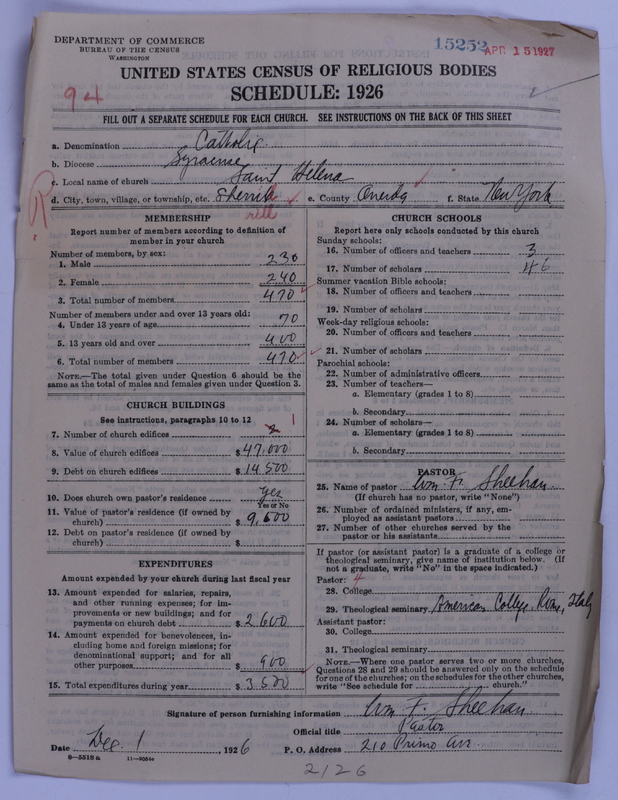 DEPARTMENT OF COMMERCE
BUREAU OF THE CENSUS
WASHINGTON
15252
APR 15 1927
UNITED STATES CENSUS OF RELIGIOUS BODIES
94
SCHEDULE: 1926
FILL OUT A SEPARATE SCHEDULE FOR EACH CHURCH. SEE INSTRUCTIONS ON THE BACK OF THIS SHEET
a. Denomination Catholic
b. Diocese Syracuse
c. Local name of church Saint Helena
d. City, town, village, or township, etc. Sherrill e. County Oneida f. State New York
MEMBERSHIP
Report number of members according to definition of
member in your church
Number of members, by sex:
1. Male 230
2. Female 240
3. Total number of members 470
Number of members under and over 13 years old:
4. Under 13 years of age 70
5. 13 years old and over 400
6. Total number of members 470
NOTE.—The total given under Question 6 should be the
same as the total of males and females given under Question 3.
CHURCH BUILDINGS
See instructions, paragraphs 10 to 12
7. Number of church edifices 2 1
8. Value of church edifices $ 47,000
9. Debt on church edifices $ 14,500
10. Does church own pastor's residence Yes
Yes or No
11. Value of pastor's residence (if owned by
church) $ 9,500
12. Debt on pastor's residence (if owned by
church) $
EXPENDITURES
Amount expended by your church during last fiscal year
13. Amount expended for salaries, repairs,
and other running expenses; for im-
provements or new buildings; and for
payments on church debt $ 2,600
14. Amount expended for benevolences, in-
cluding home and foreign missions; for
denominational support; and for all
other purposes $ 900
15. Total expenditures during year $ 3,500
CHURCH SCHOOLS
Report here only schools conducted by this church
Sunday schools:
16. Number of officers and teachers 3
17. Number of scholars 46
Summer vacation Bible schools:
18. Number of officers and teachers
19. Number of scholars
Week-day religious schools:
20. Number of officers and teachers
21. Number of scholars
Parochial schools:
22. Number of administrative officers
23. Number of teachers—
a. Elementary (grades 1 to 8)
b. Secondary
24. Number of scholars—
a. Elementary (grades 1 to 8)
b. Secondary
PASTOR
25. Name of pastor Wm F. Sheehan
(If church has no pastor, write "None")
26. Number of ordained ministers, if any, em-
ployed as assistant pastors
27. Number of other churches served by the
pastor or his assistants
If pastor (or assistant pastor) is a graduate of a college or
theological seminary, give name of institution below. (If
not a graduate, write "No" in the space indicated.)
Pastor: 4
28. College
29. Theological seminary American College, Rome, Italy
Assistant pastor:
30. College
31. Theological seminary
NOTE.—Where one pastor serves two or more churches,
Questions 28 and 29 should be answered only on the schedule
for one of the churches; on the schedules for the other churches,
write "See schedule for church."
Signature of person furnishing information Wm F. Sheehan
Official title Pastor
Date Dec. 1 1926 P. O. Address 210 Primo Av.
8—5518a 11—9054c
2126